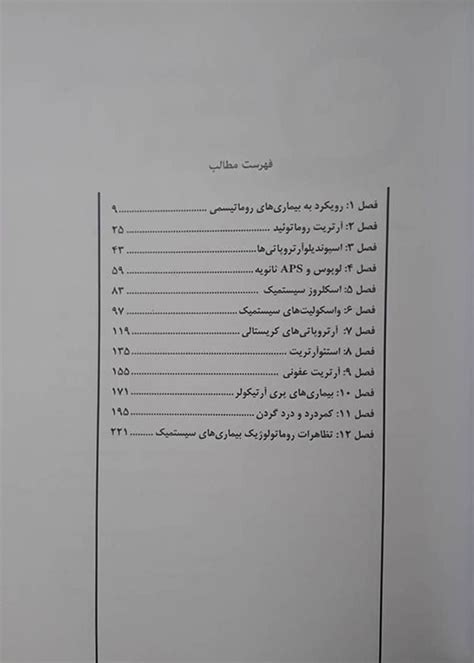 فهرست مطالب
فصل ۱: رویکرد به بیماری‌های روماتیسمی ........................... ۹
فصل ۲: آرتریت روماتوئید ........................................... ۲۵
فصل ۳: اسپوندیلوآرتروپاتی‌ها ...................................... ۴۳
فصل ۴: لوپوس و APS ثانویه ........................................ ۵۹
فصل ۵: اسکلروز سیستمیک ........................................... ۸۳
فصل ۶: واسکولیت‌های سیستمیک ...................................... ۹۷
فصل ۷: آرتروپاتی‌های کریستالی .................................... ۱۱۹
فصل ۸: استئوآرتریت ............................................... ۱۳۵
فصل ۹: آرتریت عفونی .............................................. ۱۵۵
فصل ۱۰: بیماری‌های پری آرتیکولر .................................. ۱۷۱
فصل ۱۱: کمردرد و درد گردن ........................................ ۱۹۵
فصل ۱۲: تظاهرات روماتولوژیک بیماری‌های سیستمیک ......... ۲۲۱